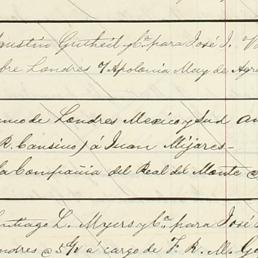 Agustin Gutheil y Ca. para José I.
sobre Londres y Apolonia May de
Banco de Londres Mexico y Sud
R. Cansino) á Juan Mijares
la Compañia del Real del Monte
Santiago L. Myers y Ca. para José
Londres @ 5% á cargo de F. R. M.